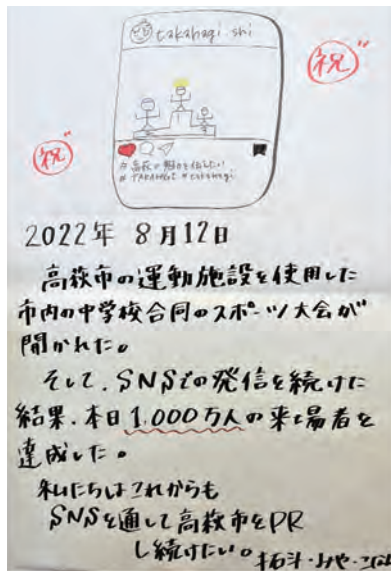 takahagi.shi
祝
祝
# 高萩の魅力を伝えたい
# TAKAHAGI # takahagi
2022年 8月12日
高萩市の運動施設を使用した
市内の中学校合同のスポーツ大会が
開かれた。
そして、SNSでの発信を続けた
結果、本日1,000万人の来場者を
達成した。
私たちはこれからも
SNSを通して高萩市をPR
し続けたい。
拓斗・みや・